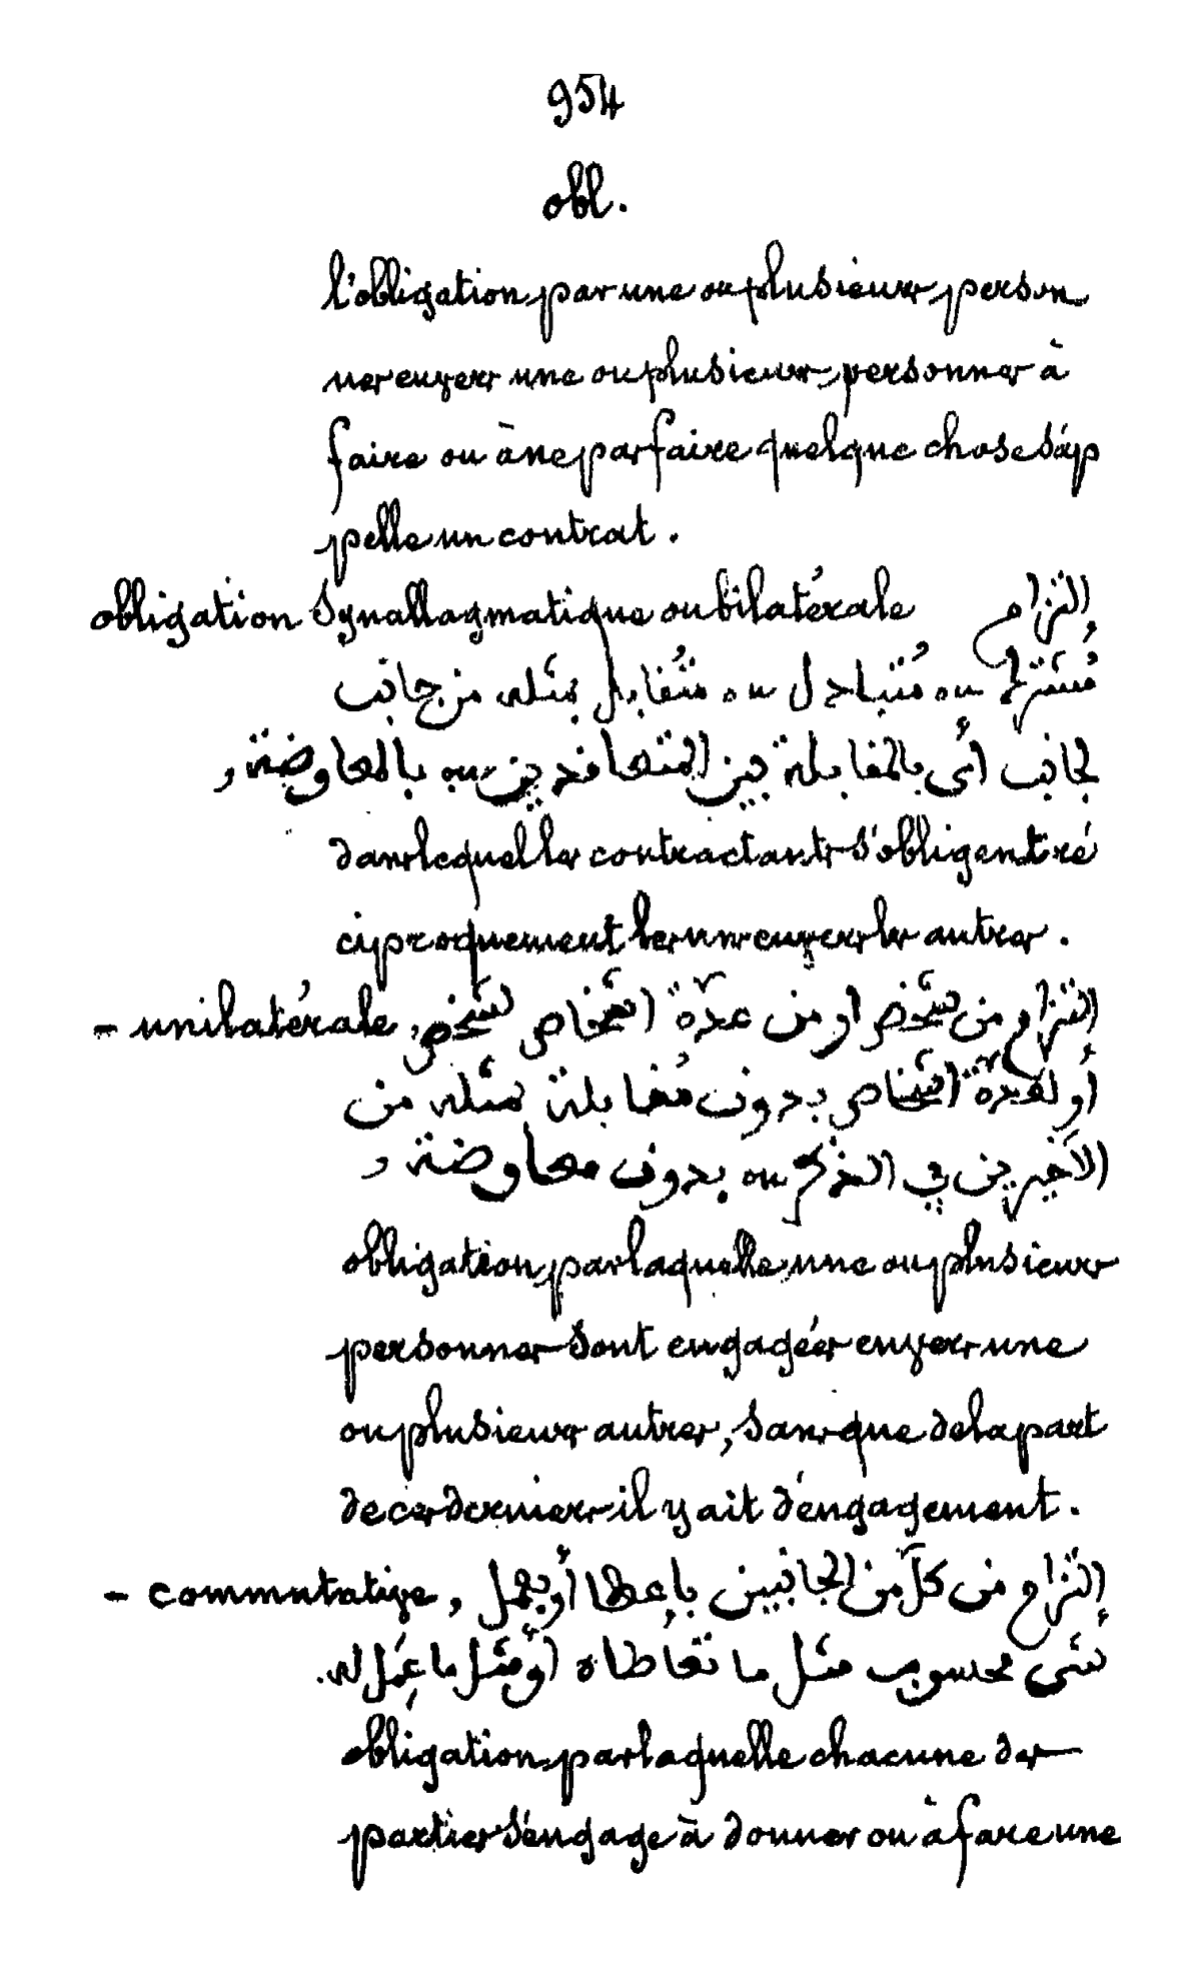 954
obl.
l'obligation par une ou plusieurs person
nes envers une ou plusieurs personnes à
faire ou à ne pas faire quelque chose s'ap
pelle un contrat.
obligation Synallagmatique ou bilatérale إلتزام
مُشترك ou مُتبادل ou مُتقابل بمثله من جانب
لجانب أي بالمقابلة بين المتعاقدين ou بالمعاوضة,
dans lequel les contractants s'obligent ré
ciproquement les uns envers les autres.
- unilatérale, إلتزام من شخص او من عدّة اشخاص لشخص
أو لعدّة اشخاص بدون مُقابلة بمثله من
الاخيرين في الذكر ou بدون معاوضة,
obligation par laquelle une ou plusieurs
personnes sont engagées envers une
ou plusieurs autres, sans que de la part
de ces derniers il y ait d'engagement.
- commutative, إلتزام من كلّ من الجانبين بإعطا أو بعمل
شي محسوب مثل ما تعاطاه أو مثل ما عُمِل له.
obligation par laquelle chacune des
parties s'engage à donner ou à faire une